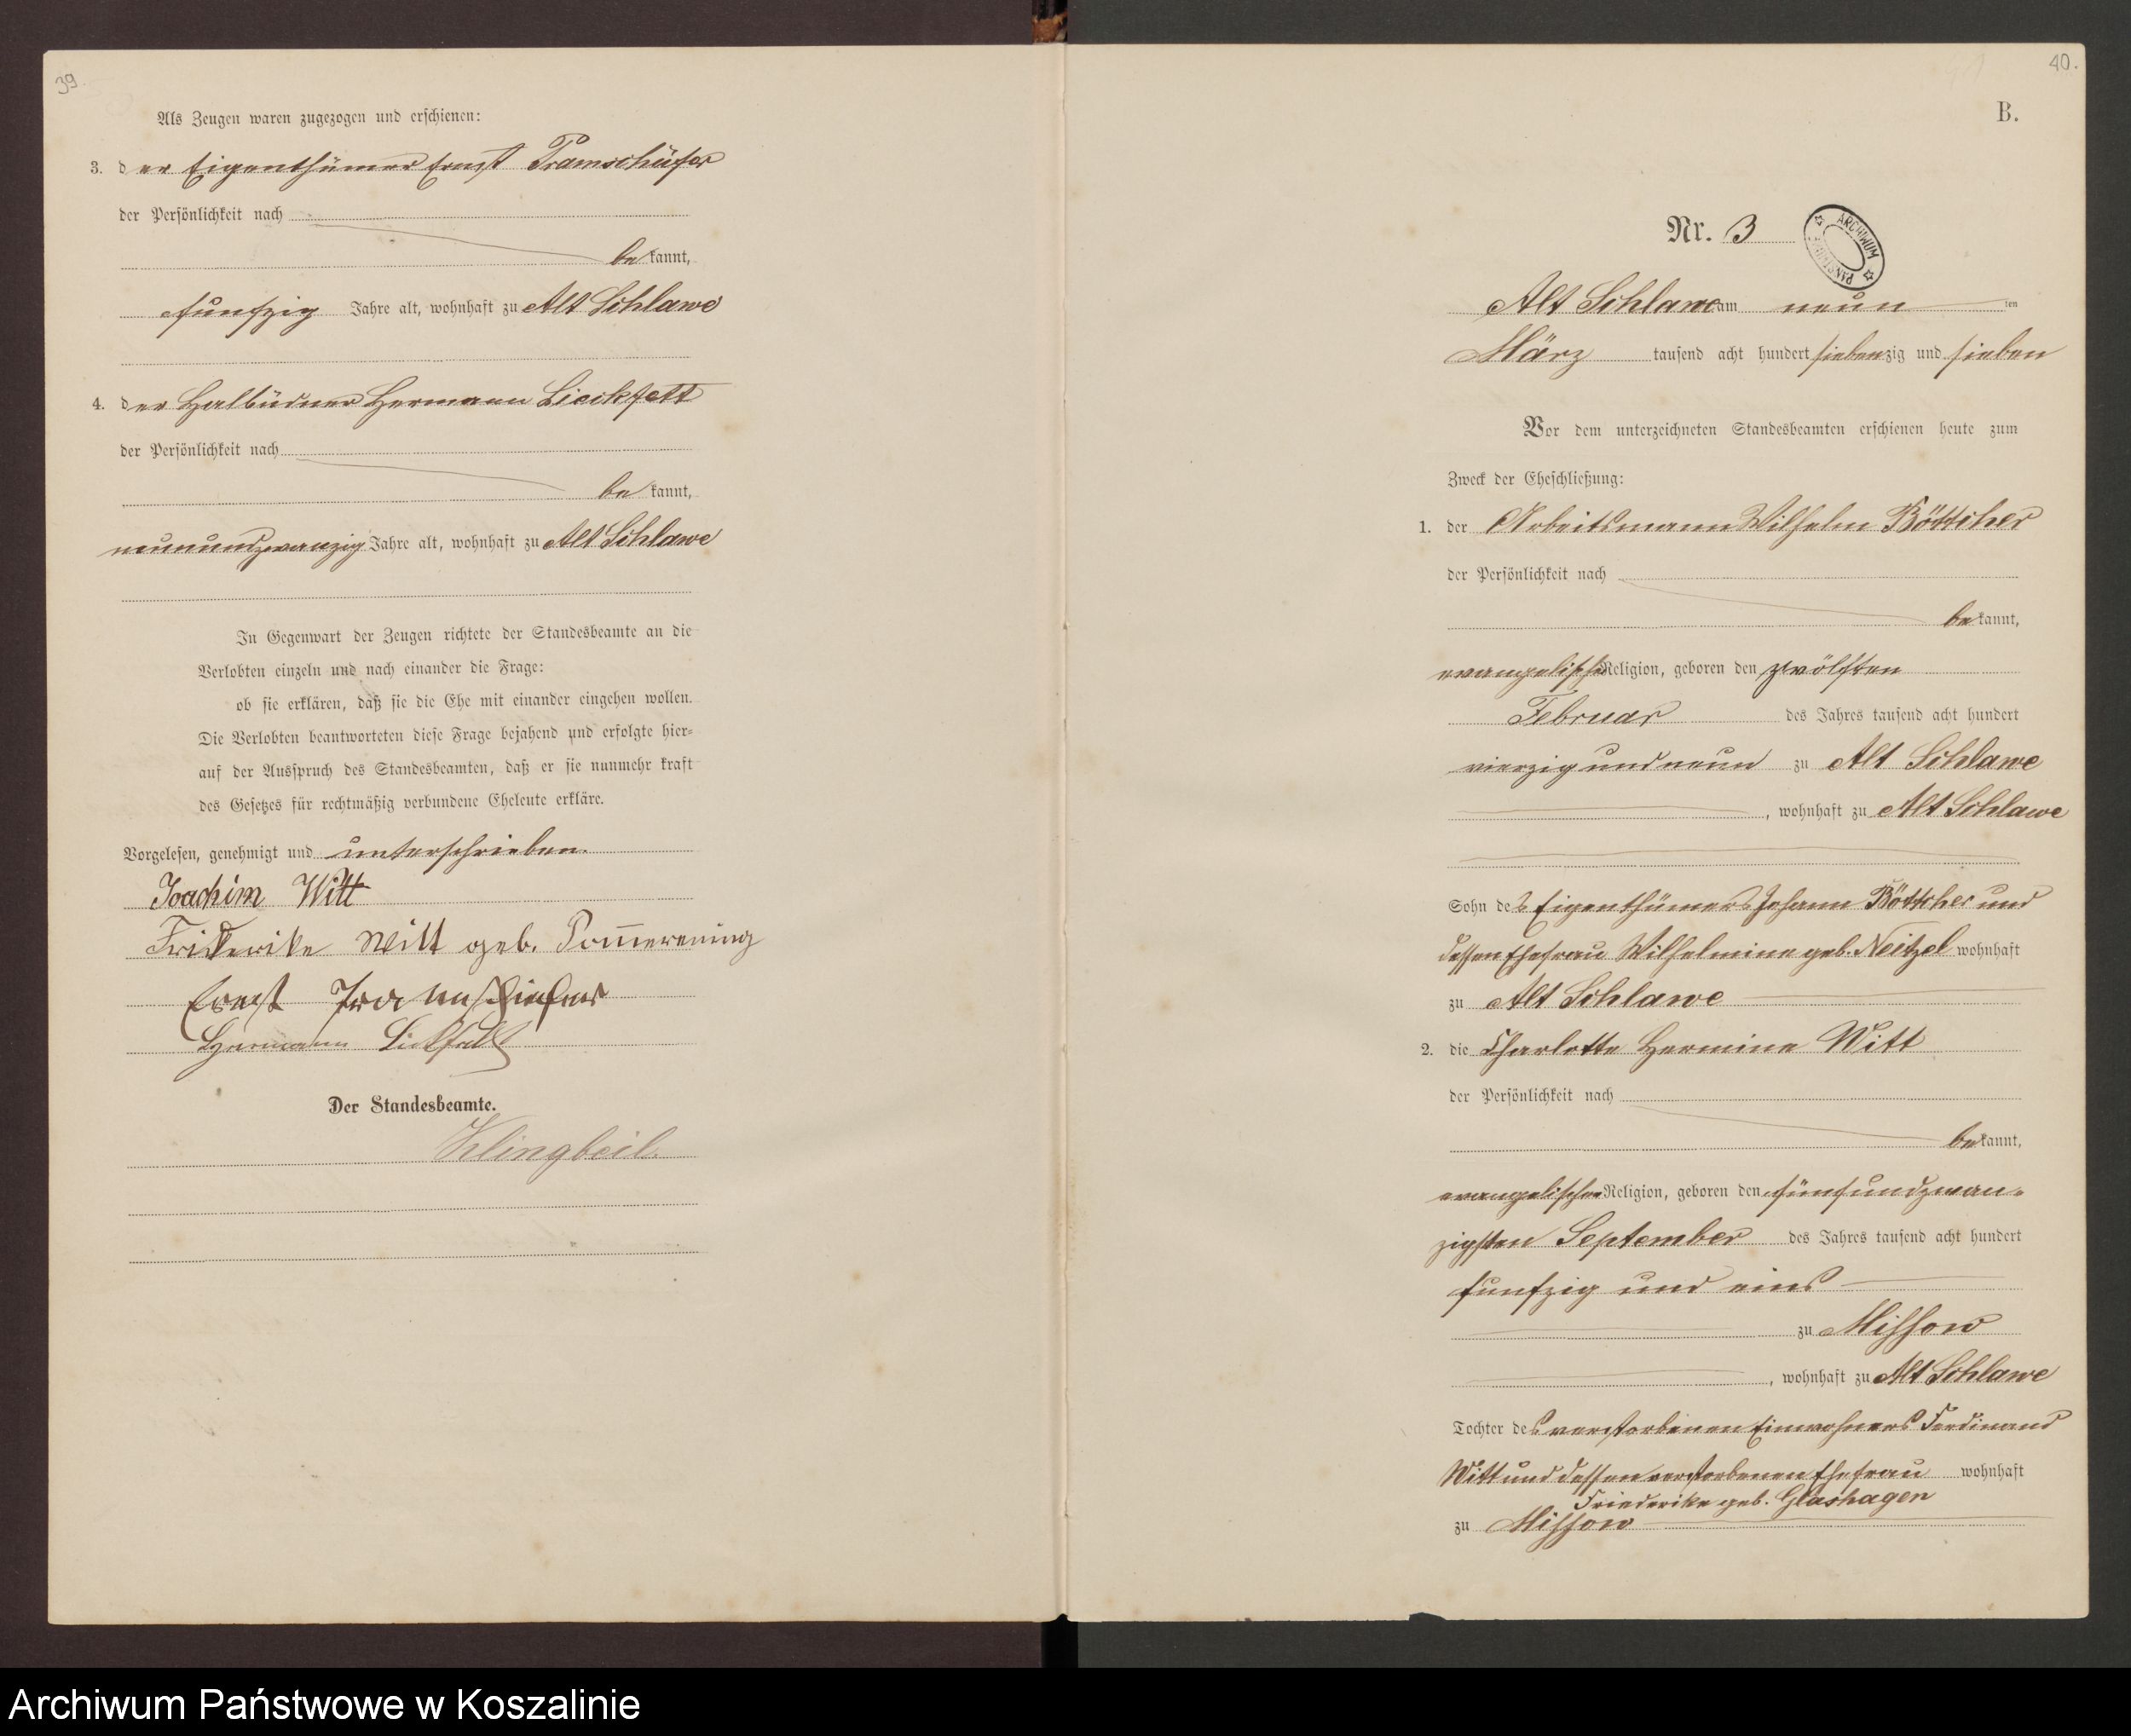 39.
Als Zeugen waren zugezogen und erschienen:
3. der Eigenthümer Ernst Pramschüfer
der Persönlichkeit nach
bekannt,
funfzig Jahre alt, wohnhaft zu Alt Schlawe
4. der Halbüdner Hermann Lieckfett
der Persönlichkeit nach
bekannt,
neunundzwanzig Jahre alt, wohnhaft zu Alt Schlawe
In Gegenwart der Zeugen richtete der Standesbeamte an die
Verlobten einzeln und nach einander die Frage:
ob sie erklären, daß sie die Ehe mit einander eingehen wollen.
Die Verlobten beantworteten diese Frage bejahend und erfolgte hier-
auf der Ausspruch des Standesbeamten, daß er sie nunmehr kraft
des Gesetzes für rechtmäßig verbundene Eheleute erkläre.
Vorgelesen, genehmigt und unterschrieben.
Joachim Witt
Friderike Witt geb. Pom̅erening
Ernst
Hermann
Der Standesbeamte.
Klingbeil.
40.
B.
Nr. 3
ARCHIWUM PAŃSTWOWE
Alt Schlawe am neun ten
März tausend acht hundert siebenzig und sieben
Vor dem unterzeichneten Standesbeamten erschienen heute zum
Zweck der Eheschließung:
1. der Arbeitsmann Wilhelm Böttcher
der Persönlichkeit nach
bekannt,
evangelischer Religion, geboren den zwölften
Februar des Jahres tausend acht hundert
vierzig und neun zu Alt Schlawe
, wohnhaft zu Alt Schlawe
Sohn des Eigenthümers Johann Böttcher und
dessen Ehefrau Wilhelmine geb. Neitzel wohnhaft
zu Alt Schlawe
2. die Charlotte Hermine Witt
der Persönlichkeit nach
bekannt,
evangelischer Religion, geboren den fünfundzwan-
zigsten September des Jahres tausend acht hundert
funfzig und eins
zu Missow
, wohnhaft zu Alt Schlawe
Tochter des verstorbenen Einwohners Ferdinand
Witt und dessen verstorbenen Ehefrau wohnhaft
Friederike geb. Glashagen
zu Missow
Archiwum Państwowe w Koszalinie